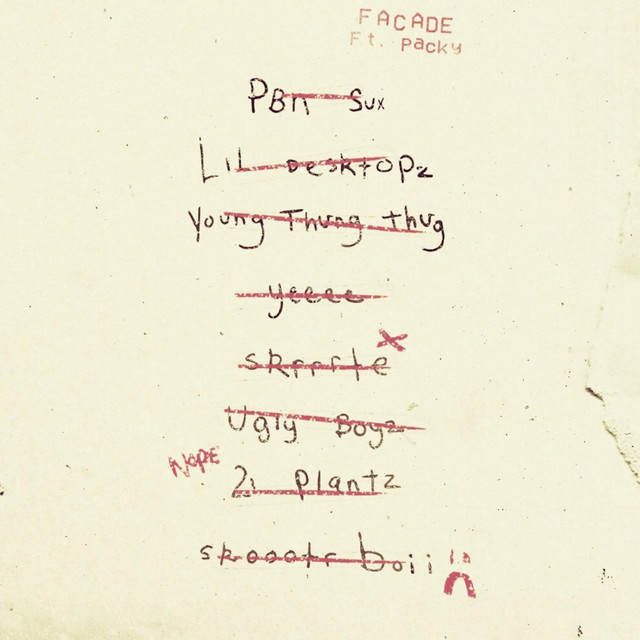 FACADE
Ft. Packy
PBn Sux
Lil Desktopz
Young Thung thug
yeeee
skrrrte
Ugly Boyz
NOPE
21 Plantz
skoootr boii